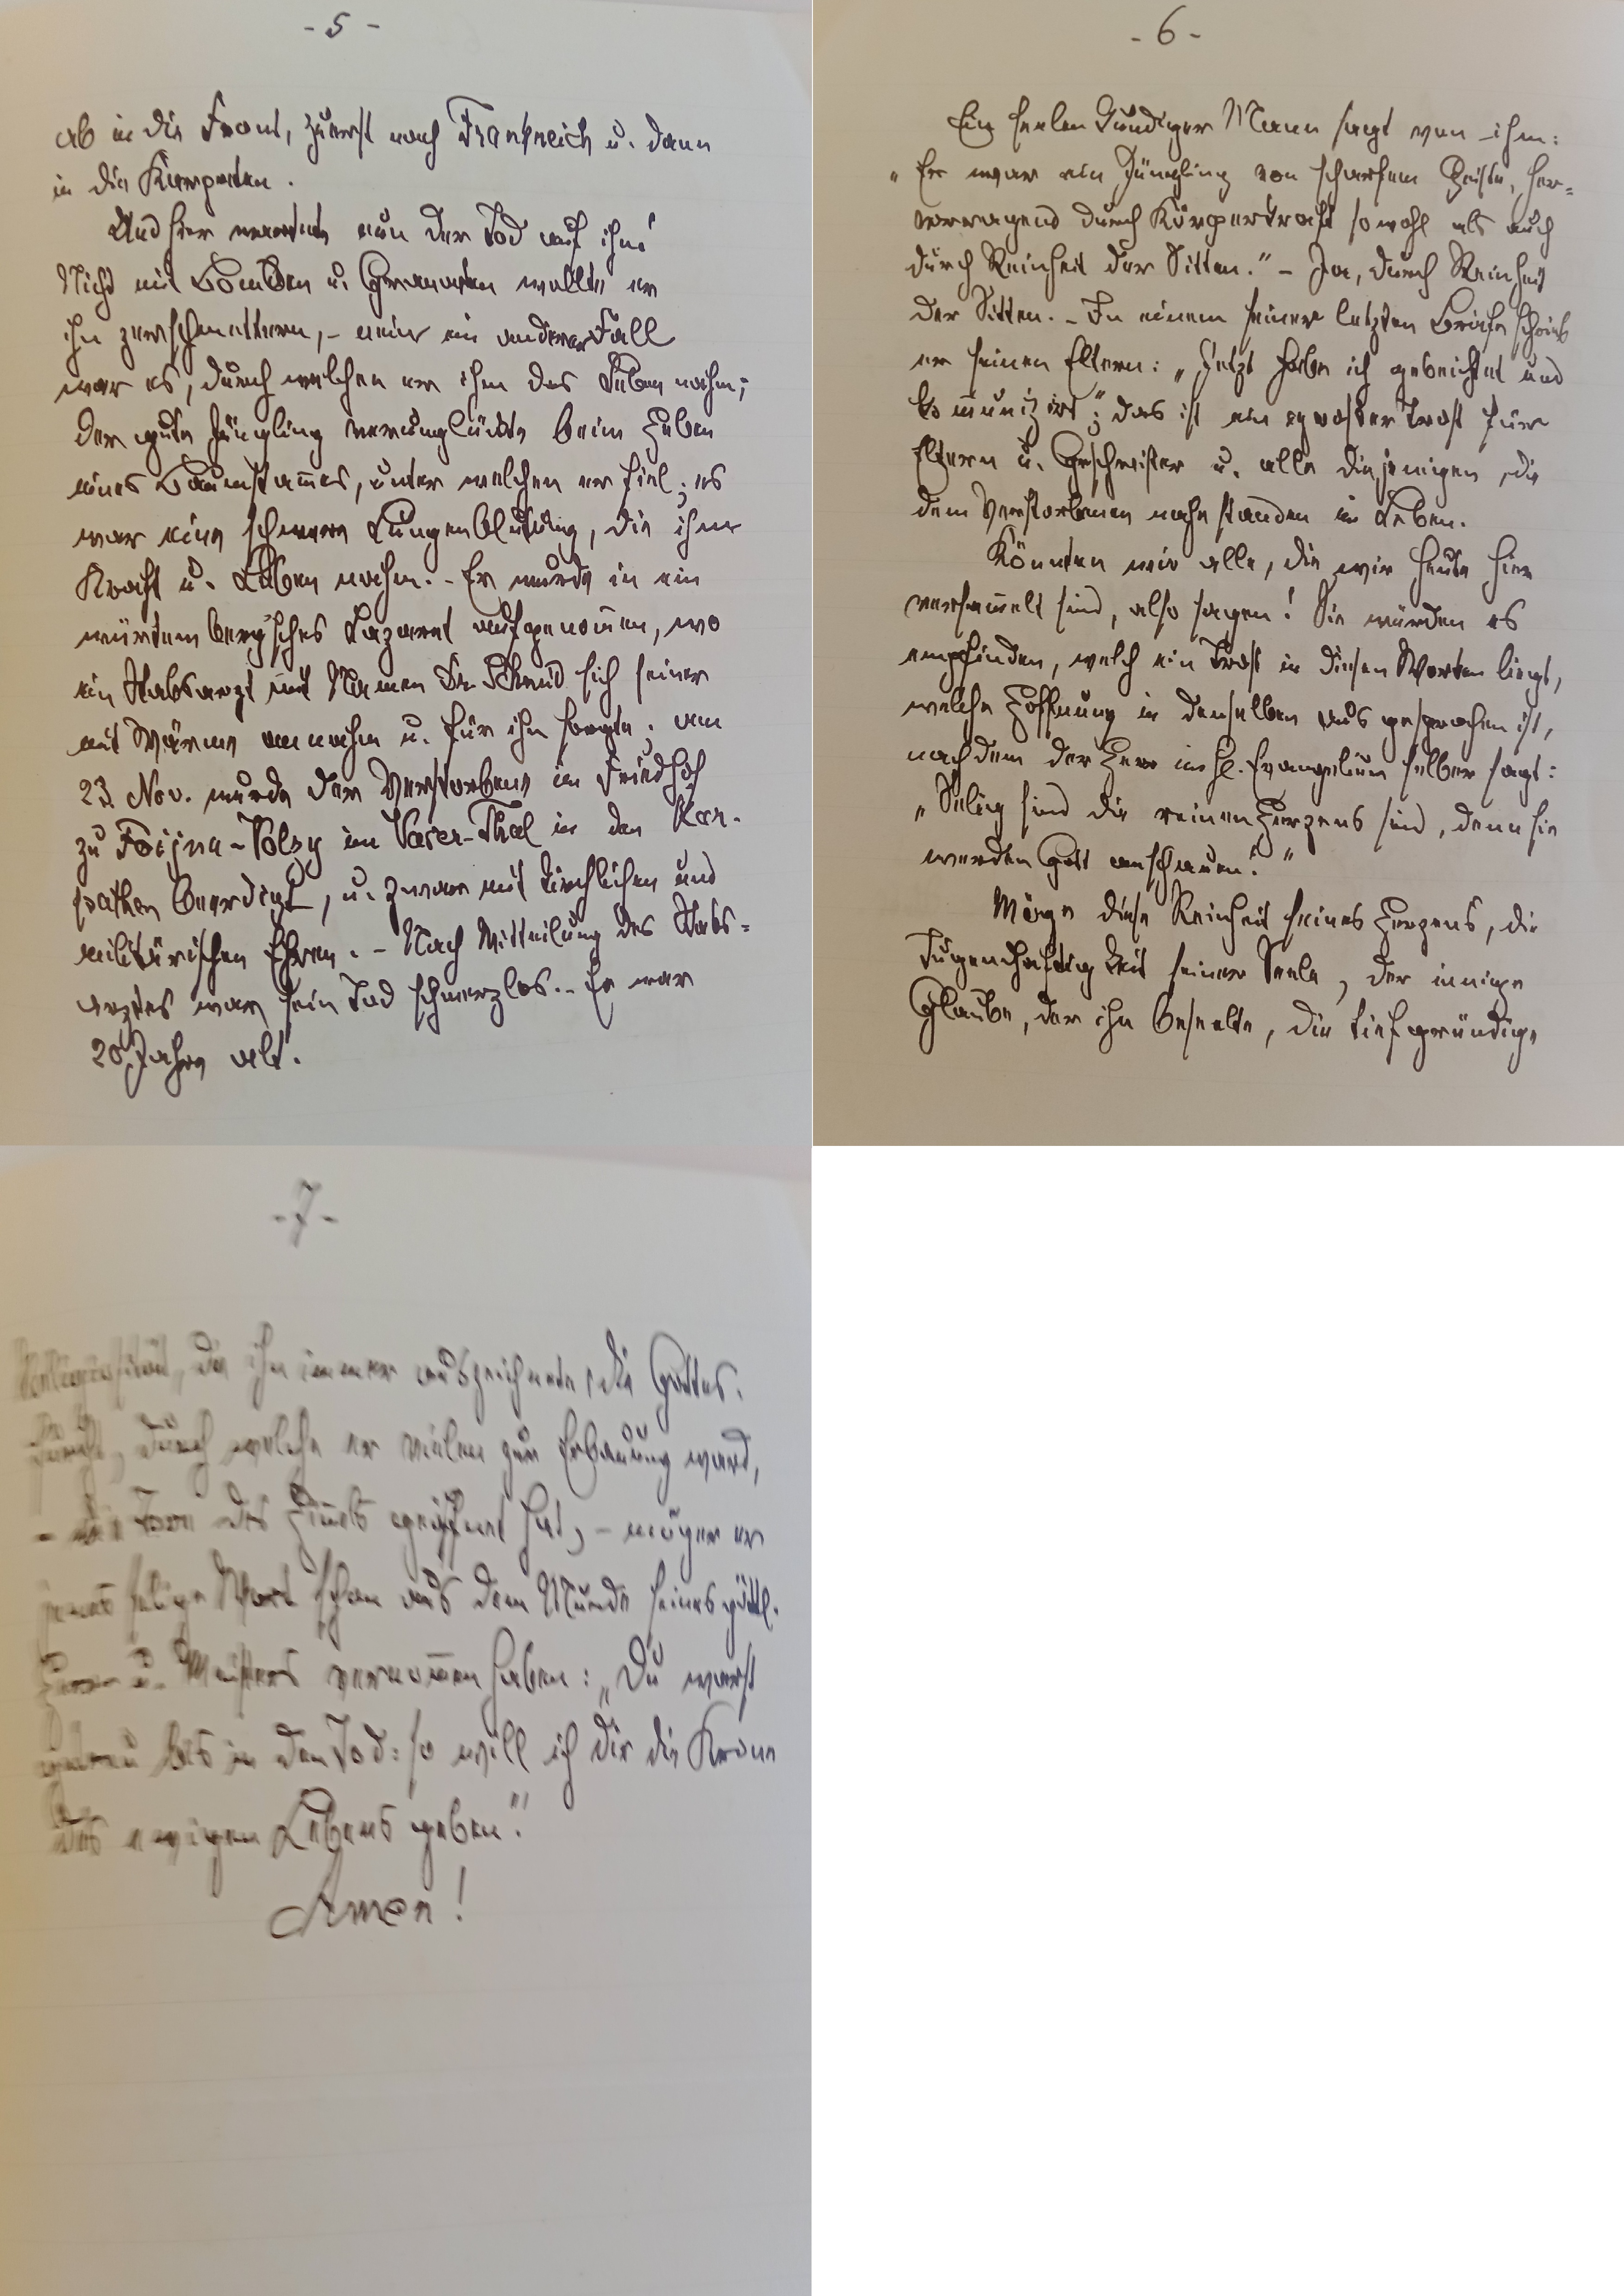 - 5 -
ab in die Front, zuerst nach Frankreich u. dann
in die Karpaten.
Und hier wartete nun der Tod auf ihn!
Nicht mit Bomben u. Granaten wollte er
ihn zerschmettern, - nein ein anderer Fall
war es, durch welchen er ihm das Leben nahm;
der gute Jüngling verunglückte beim Heben
eines Baumstam̅es, unter welchen er fiel; es
war eine schwere Lungenblutung, die ihm
Kraft u. Leben nahm. - Er wurde in ein
würtembergisches Lazaret aufgenom̅en, wo
ein Stabsarzt mit Namen Dr. Schmid sich seiner
mit Wärme annahm u. für ihn sorgte; am
23. Nov. wurde der Verstorbene im Friedhof
zu Foijna-Volsy im Vaser-Thal in den Kar-
pathen beerdigt, u. zwar mit kirchlichen und
militärischen Ehren. - Nach Mitteilung des Stabs=
arztes war sein Tod schmerzlos. - Er war
20 Jahre alt.
- 6 -
Ein seelenkundiger Mann sagt von ihm:
„Er war ein Jüngling von scharfem Geiste, her=
vorragend durch Körperkraft sowohl als auch
durch Reinheit der Sitten." - Ja, durch Reinheit
der Sitten. - In einem seiner letzten Briefe schrieb
er seinen Eltern: „Jetzt habe ich gebeichtet und
kom̅uniziert"; das ist ein großer Trost für
Eltern u. Geschwister u. alle diejenigen, die
dem Verstorbenen nahe standen im Leben.
Könnten wir alle, die wir heute hier
versam̅elt sind, also sagen! Sie würden es
empfinden, welch ein Trost in diesen Worten liegt,
welche Hoffnung in denselben ausgesprochen ist,
nachdem der Herr im hl. Evangelium selber sagt:
„Selig sind die reinen Herzens sind, denn sie
werden Gott anschauen."
Möge diese Reinheit seines Herzens, die
Tugendhaftigkeit seiner Seele, der innige
Glaube, der ihn beseelte, die tiefgründige
- 7 -
Religiosität, die ihn immer auszeichnete, die Gottes-
furcht, durch welche er vielen zur Erbauung ward,
- die Tore des Him̅els geöffnet hat, - möge er
jenes selige Wort schon aus dem Munde seines göttl.
Herrn u. Meisters vernom̅en haben: „Du warst
getreu bis in den Tod: so will ich dir die Krone
des ewigen Lebens geben."
Amen!